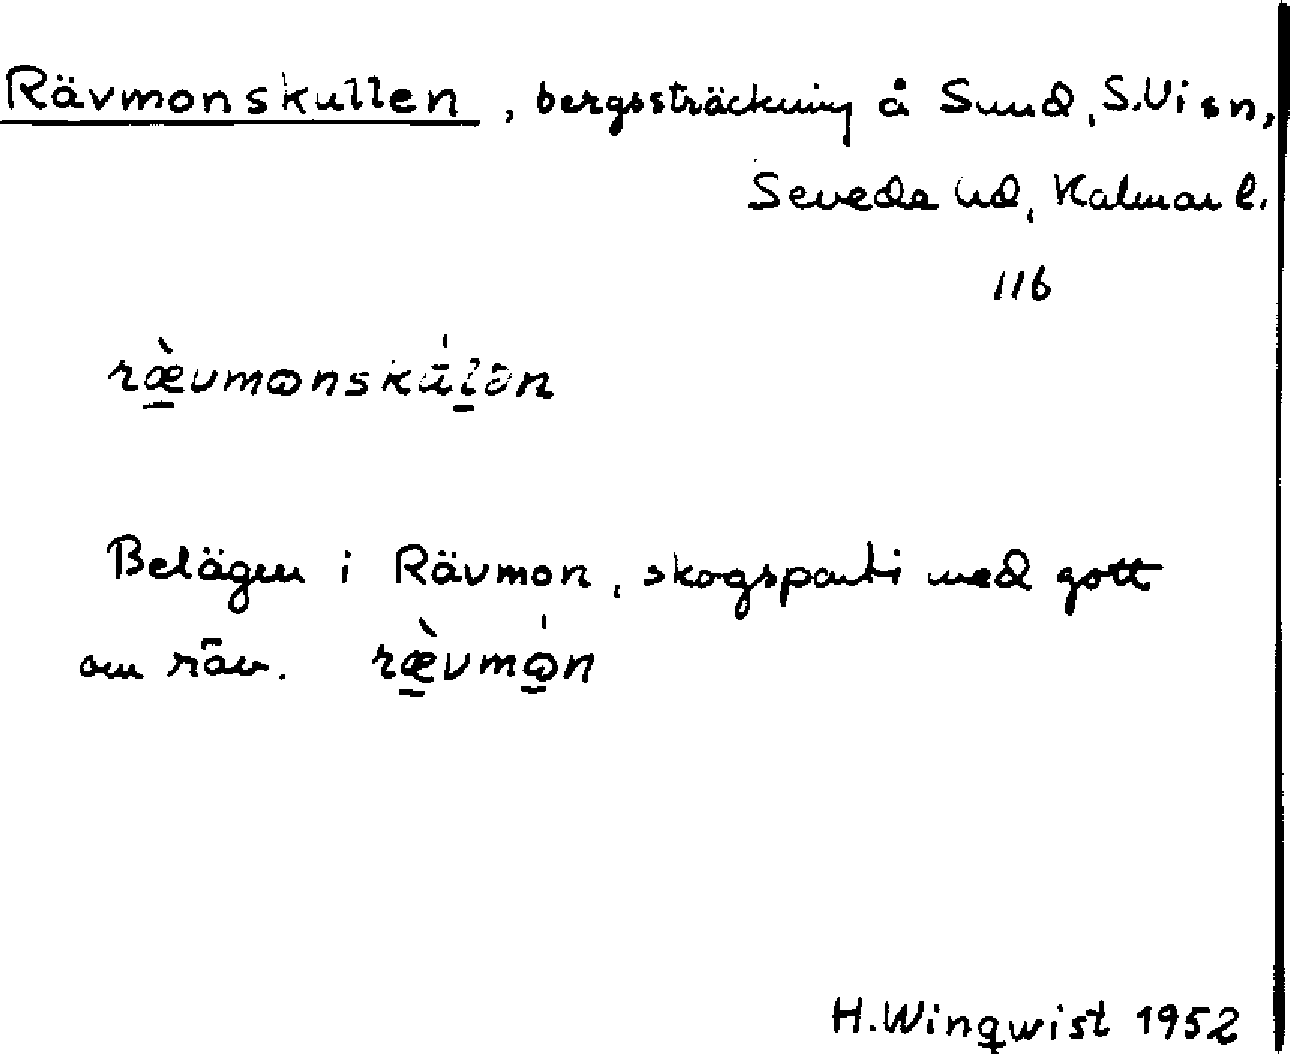 Rävmonskullen, bergssträckning å Sund, S.Vi sn,
Sevede hd, Kalmar l.
116
ræ̀vmωnskúlən
Belägen i Rävmon, skogsparti med gott
om räv. ræ̀vmώn
H.Winqwist 1952